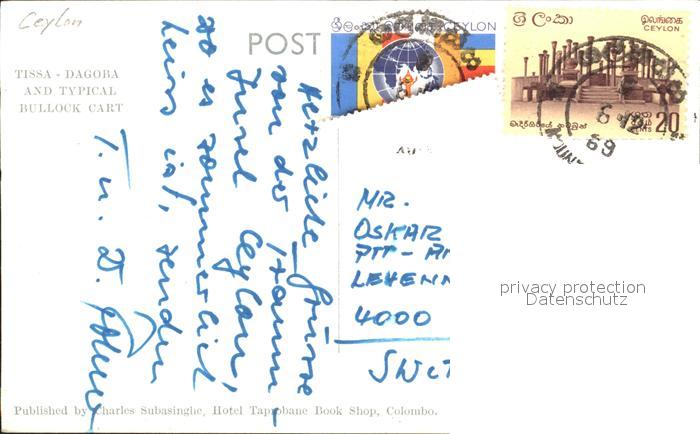 Ceylon
POST
TISSA - DAGOBA
AND TYPICAL
BULLOCK CART
ශ්‍රී ලංකා
CEYLON
ශ්‍රී ලංකා இலங்கை
CEYLON
20
CENTS
69
Herzliche Grüsse
von der
Insel Ceylon,
wo es sommerlich
heiss ist, senden
T. u. W.
MR.
OSKAR
PTT -
LEHENM
4000
SWIT
privacy protection
Datenschutz
Published by Charles Subasinghe, Hotel Taprobane Book Shop, Colombo.